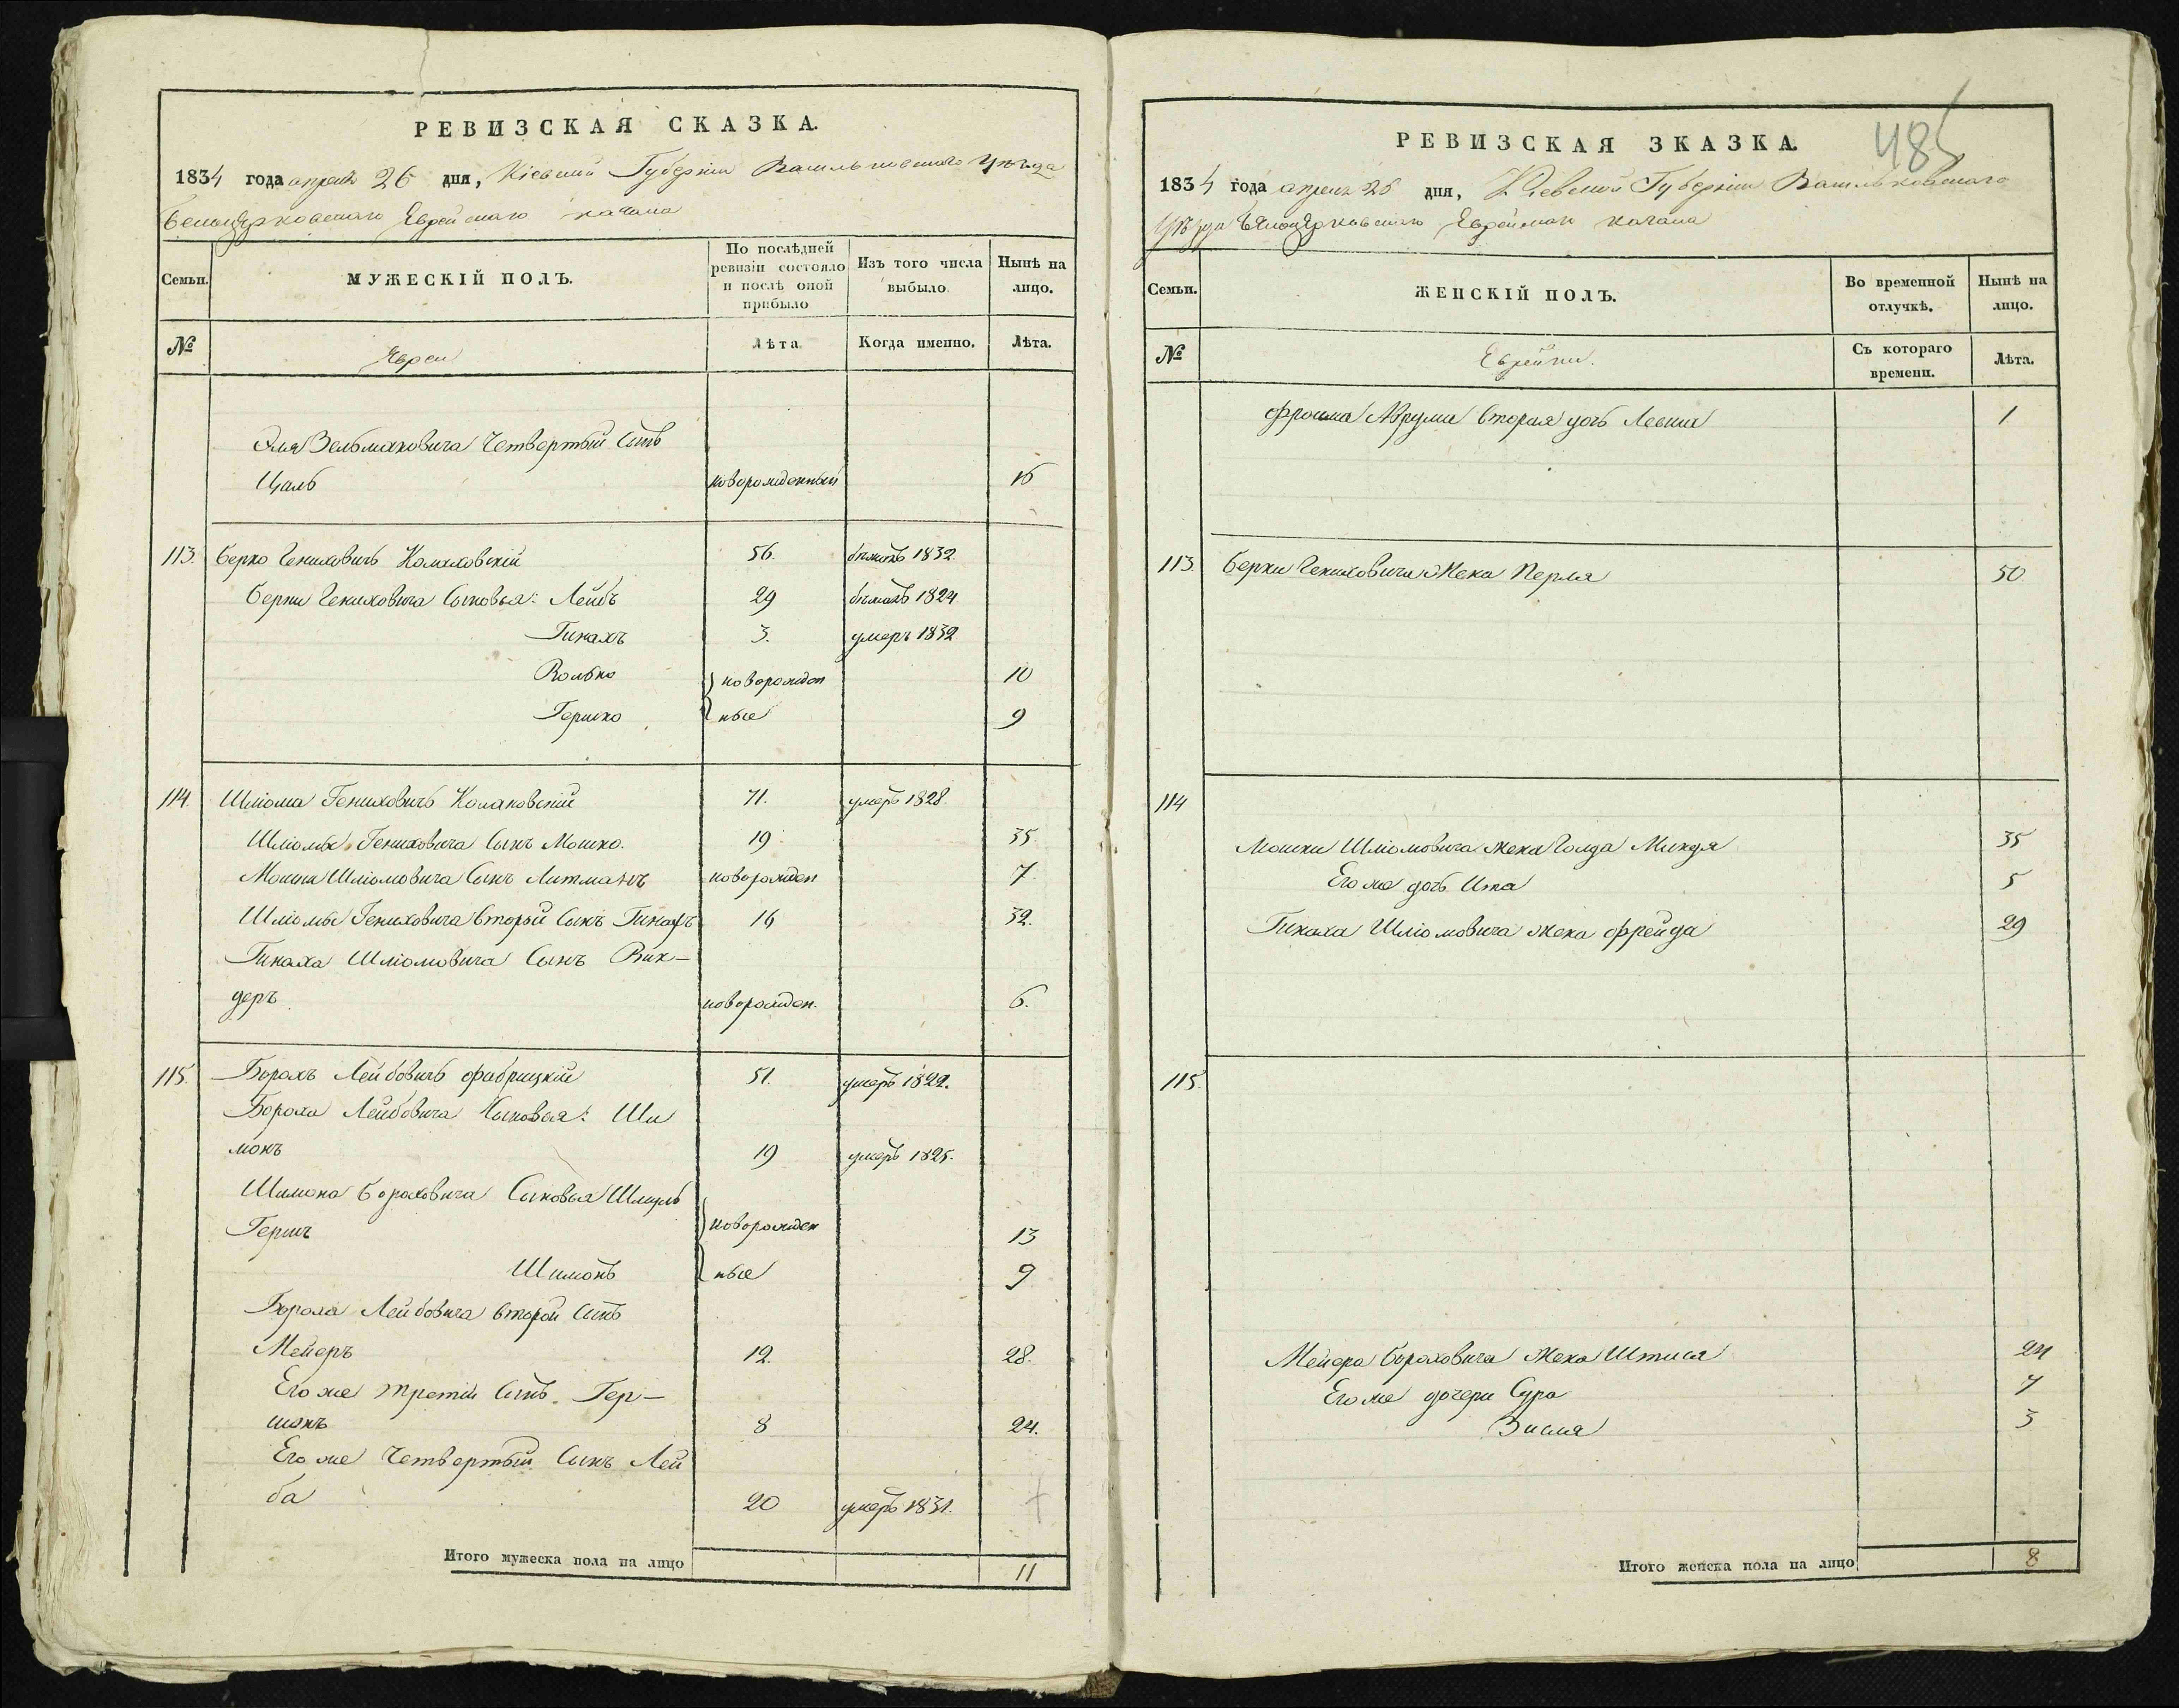 РЕВИЗСКАЯ СКАЗКА.
1834 года апреля 26 дня, Кіевской Губерніи Васильковскаго Уѣзда
Белоцерковскаго Еврейскаго кагала
Семьи.
МУЖЕСКІЙ ПОЛЪ.
По послѣдней ревизіи состояло и послѣ оной прибыло
Изъ того числа выбыло.
Нынѣ на лицо.
№
Евреи
Лѣта
Когда именно.
Лѣта.
Четвертый Сынъ
Цаль новорожденный 16
113. Берко Гениховичъ 56. бѣжалъ 1832.
Берки Гениховича Сыновья: Лейбъ 29 бѣжалъ 1824.
Гинахъ 3. умеръ 1832
Волько новорожден 10
Гершко ные 9
114. Шліома Гениховичъ 71. умеръ 1828.
Шліомы Гениховича Сынъ Мошко. 19 35
Мошки Шліомовича Сынъ Литманъ новорожден 7
Шліомы Гениховича Вторый Сынъ Гинахъ 16 32.
Гинаха Шліомовича Сынъ Вик-
деръ новорожден. 6.
115. Борохъ Лейбовичъ Фабрицкій 51. умеръ 1822.
Бороха Лейбовича Сыновья: Ши
монъ 19 умеръ 1825.
Шимона Бороховича Сыновья Шмуль
Гершъ новорожден 13
Шимонъ ные 9
Бороха Лейбовича второй Сынъ
Мейеръ 12. 28.
Его же третій Сынъ Гер-
шонъ 8 24.
Его же Четвертый Сынъ Лей
ба 20 умеръ 1831.
Итого мужеска пола на лицо 11
485
РЕВИЗСКАЯ ЗКАЗКА.
1834 года апреля 26 дня, Кіевской Губерніи Васильковскаго
Уѣзда Бѣлоцерковскаго Еврейскаго кагала
Семьи.
ЖЕНСКІЙ ПОЛЪ.
Во временной отлучкѣ.
Нынѣ на лицо.
№
Еврейки.
Съ котораго времени.
Лѣта.
Вторая дочь 1
113. Берки Гениховича Жена Перля 50
114
Мошки Шліомовича жена Голда Миндя 35
Его же дочь Ита 5
Гинаха Шліомовича жена Фрейда 29
115.
Мейера Бороховича Жена 24
Его же дочери Сура 7
Зисля 3
Итого женска пола на лицо 8